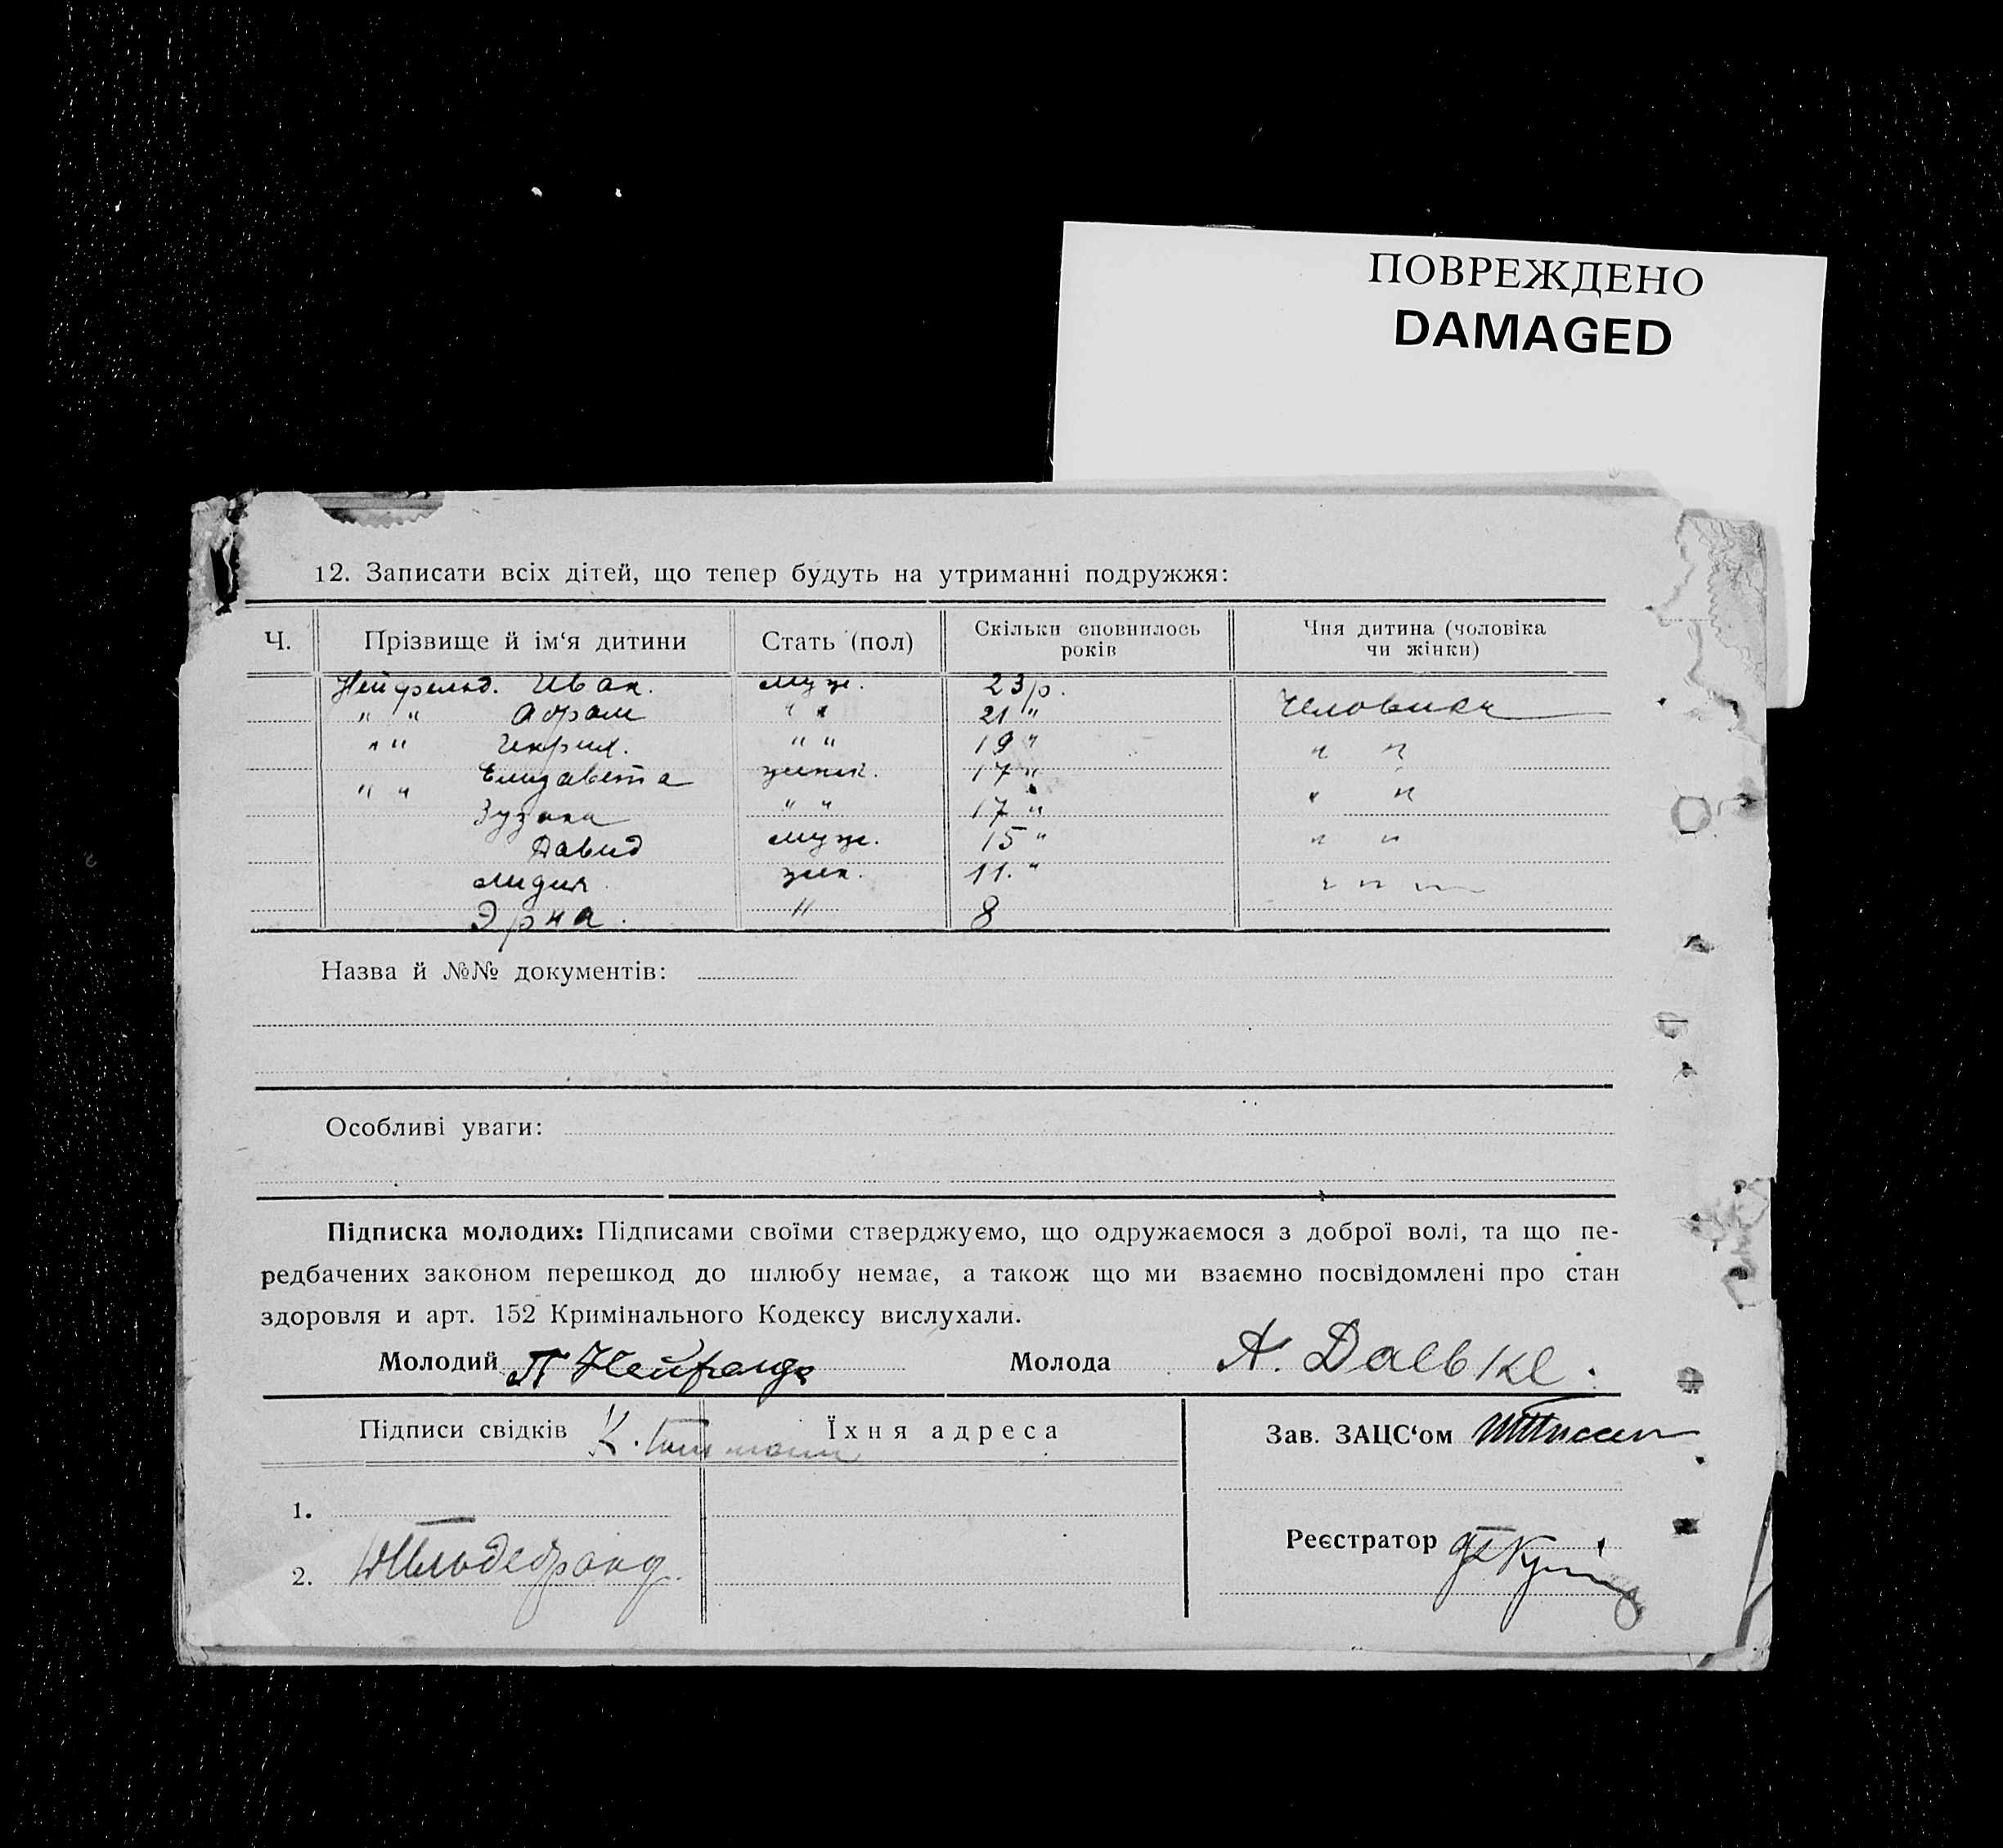 ПОВРЕЖДЕНО
DAMAGED
12. Записати всіх дітей, що тепер будуть на утриманні подружжя:
Ч. Прізвище й ім‘я дитини Стать (пол) Скільки сповнилось років Чия дитина (чоловіка чи жінки)
Нейфельд. Иван. муж. 23 р. Человика
" " Абрам " " 21 "
" " Генрих. " " 19 " " "
" " Елизавета жинк. 17 " " "
Зузана " " 17 "
Давид муж. 15 " " "
Лидия жин. 11. " " " "
Эрна. " 8
Назва й №№ документів:
Особливі уваги:
Підписка молодих: Підписами своїми стверджуємо, що одружаємося з доброї волі, та що пе-
редбачених законом перешкод до шлюбу немає, а також що ми взаємно посвідомлені про стан
здоровля и арт. 152 Кримінального Кодексу вислухали.
Молодий П Нейфельд Молода А. Дальке.
Підписи свідків К. Їхня адреса Зав. ЗАЦС‘ом
1.
Реєстратор
2.